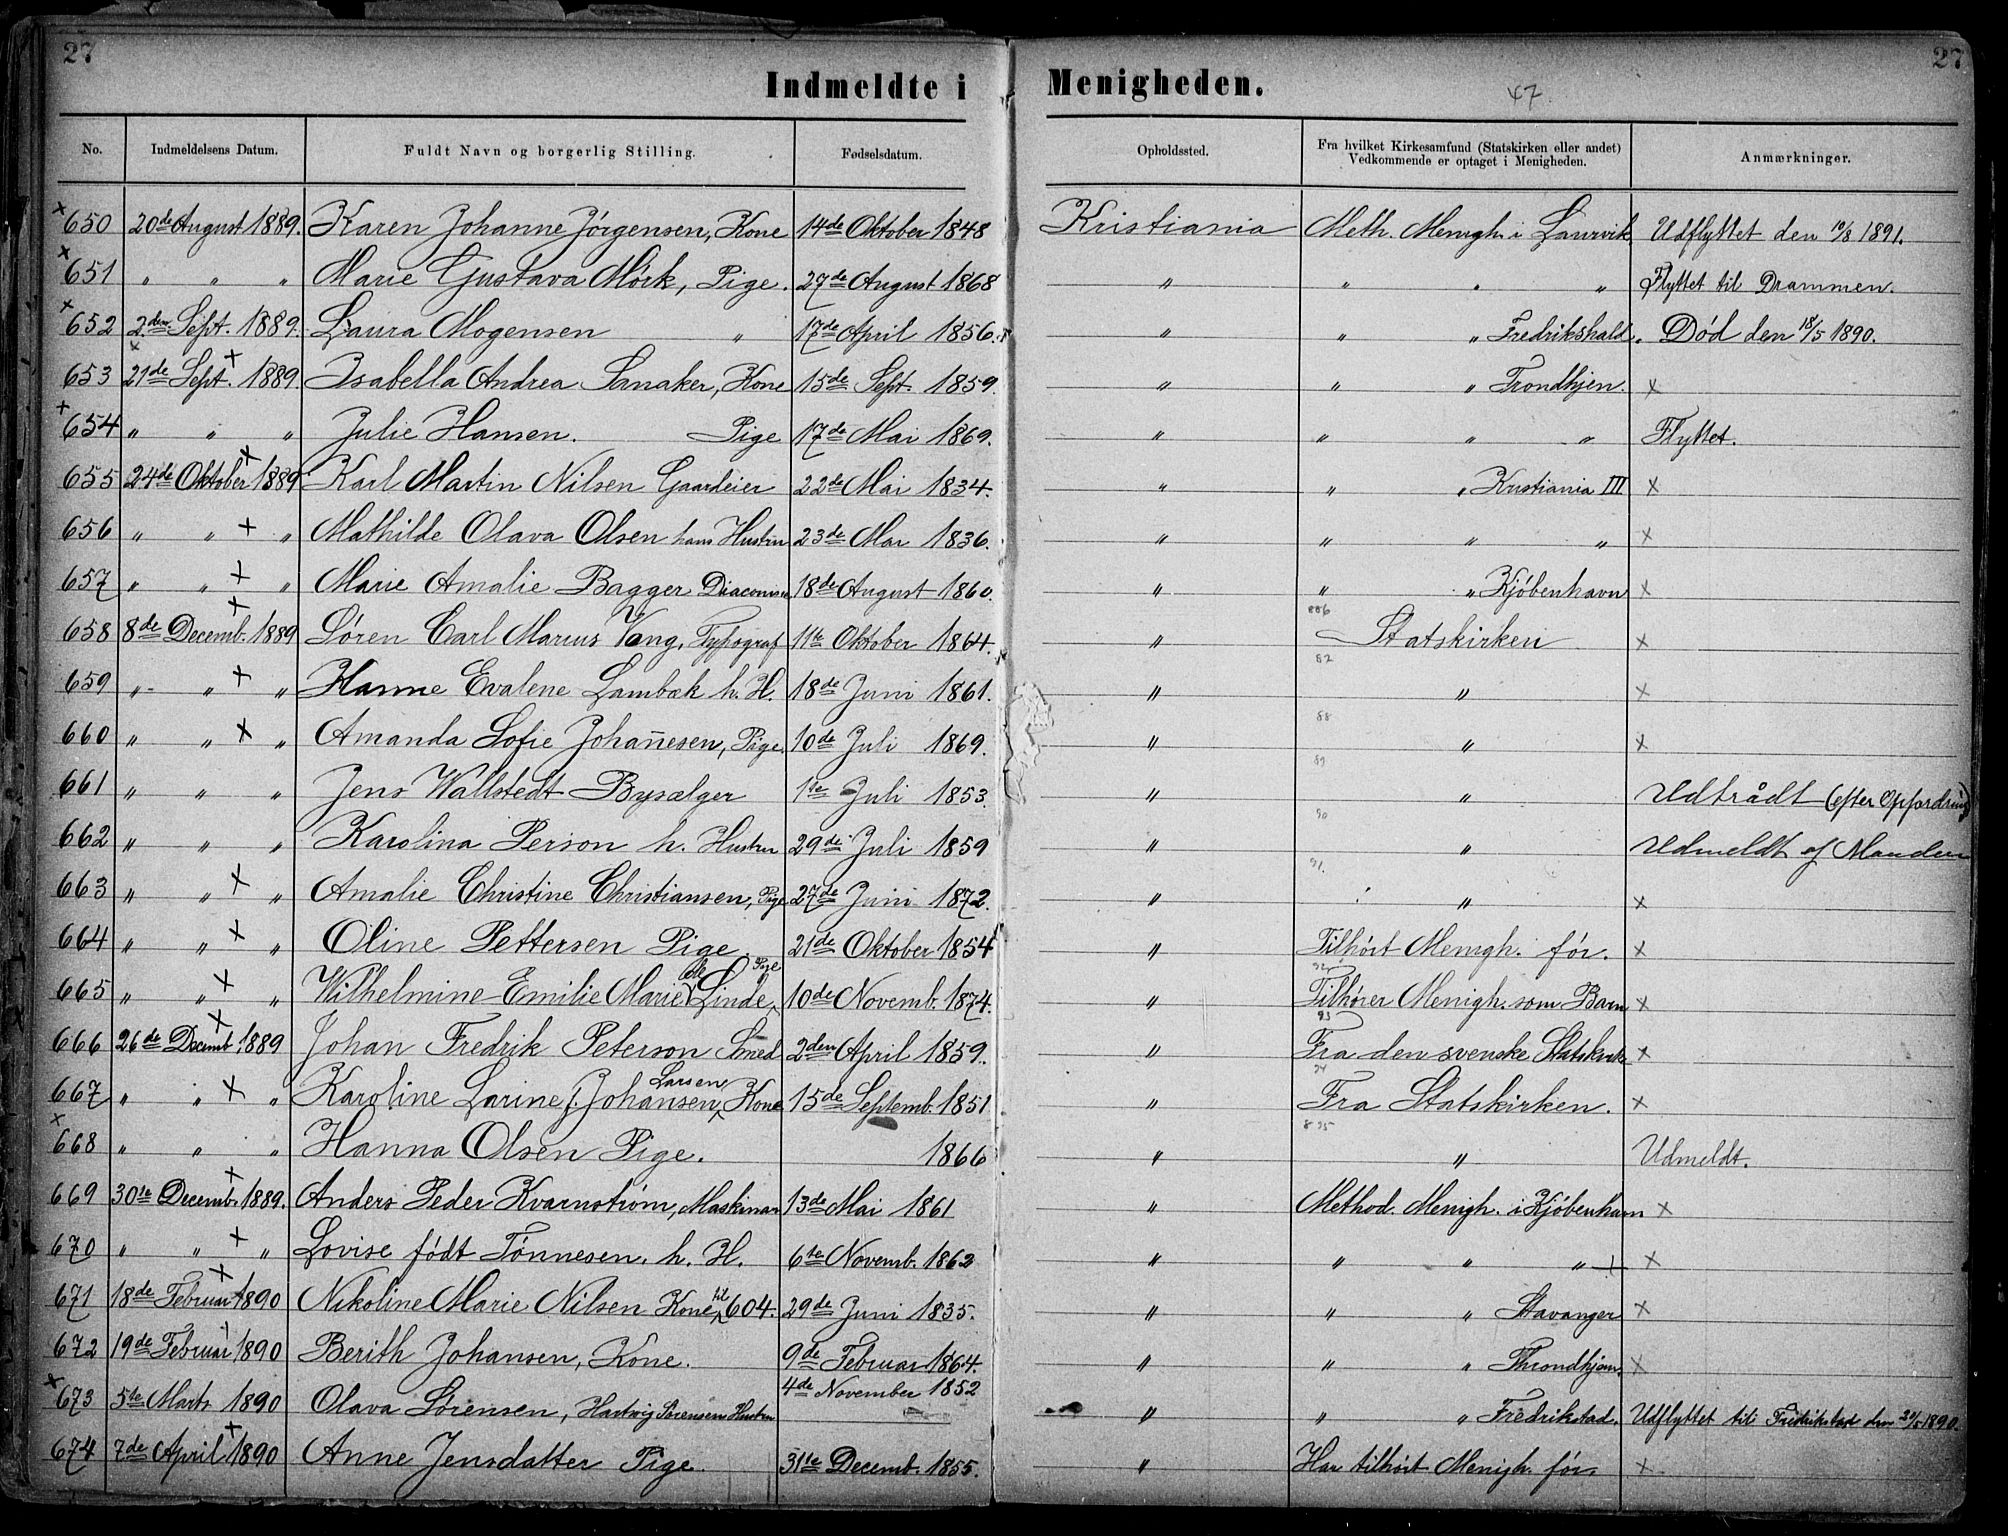 27 27
Indmeldte i Menigheden.
47.
No. Indmeldelsens Datum. Fuldt Navn og borgerlig Stilling. Fødselsdatum. Opholdssted. Fra hvilket Kirkesamfund (Statskirken eller andet) Vedkommende er optaget i Menigheden. Anmærkninger.
× 650 20de August 1889. Karen Johanne Jørgensen, Kone 14de Oktober 1848 Kristiania Meth. Menigh. i Laurvik Udflyttet den 10/8 1891.
× 651 " " " Marie Gustava Mørk, Pige. 27de August 1868 " " " " Flyttet til Drammen.
× 652 2den Sept. 1889. Laura Mogensen " 17de April 1856. " " " Fredrikshald. Død den 18/5 1890.
653 21de Sept. × 1889. Isabella Andrea Sanaker, Kone 15de Sept. 1859. " " " Trondhjem. ×
× 654 " " " Julie Hansen. Pige 17de Mai 1869. " " " " Flyttet.
655 24de Oktober × 1889 Karl Martin Nilsen Gaardeier 22de Mai 1834. " " " Kristiania III ×
656 " " × " Mathilde Olava Olsen hans Hustru 23de Mai 1836. " " " " ×
657 " " × " Marie Amalie Bagger Diaconisse 18de August 1860. " " " Kjøbenhavn ×
658 8de Decemb. × 1889 Søren Carl Marius Vang, Typograf 11te Oktober 1864. " 886 Statskirken ×
659 " " × " Hanne Evalene Lambæk h. H. 18de Juni 1861. " 82 " ×
660 " " × " Amanda Sofie Johan̄esen, Pige 10de Juli 1869. " 88 " ×
661 " " " Jens Wallstedt Bysælger 1te Juli 1853. " 89 " Udtrådt (efter Opfordring)
662 " " " Karolina Person h. Hustru 29de Juli 1859 " 90 " Udmeldt af Manden
663 " " × " Amalie Christine Christiansen, Pige 27de Juni 1872. " 91. " ×
664 " " × " Oline Pettersen Pige 21de Oktober 1854 " Tilhørt Menigh. før. ×
665 " " × " Wilhelmine Emilie Marie de Linde, Pige 10de Novemb. 1874. " 92 Tilhører Menigh. som Barn ×
666 26de Decemb. × 1889 Johan Fredrik Peterson Smed 2den April 1859. " 93 Fra den svenske Statskirke ×
667 " " × " Karoline Larine f. Johansen, Larsen Kone 15de Septemb. 1851 " 94 Fra Statskirken. ×
× 668 " " " Hanna Olsen Pige. 1866 " 895 " Udmeldt.
669 30te Decemb. × 1889. Anders Peder Kvarnstrøm, Maskinar 13de Mai 1861 " Method. Menigh. i Kjøbenhavn ×
670 " " × " Lovise født Tønnesen. h. H. 6te Novemb. 1862 " " " " ×
671 18de Februar × 1890 Nikoline Marie Nilsen Kone til 604. 29de Juni 1835. " " " Stavanger ×
672 19de Februar 1890 Berith Johansen, Kone. 9de Februar 1864. " " " Throndhjem. ×
× 673 5te Marts 1890 Olava Sørensen, Hartvig Sørensens Hustru 4de November 1852 " " " Fredrikstad. Udflyttet til Fredrikstad den 20/5 1890.
674 7de April × 1890 Anne Jensdatter Pige 31te Decemb. 1855. " Har tilhørt Menigh. før. ×